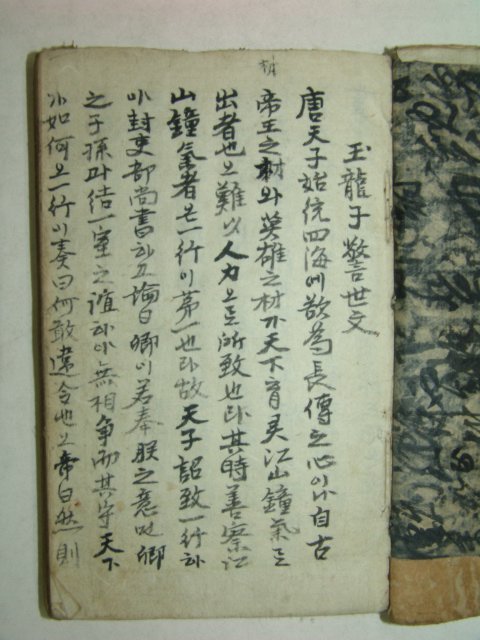 玉龍子警世文
唐天子始統四海에欲爲長傳之心이나自古
帝王之材와英雄之材가天下育灵江山鐘氣로
出者也오難以人力으로所致也라其時善察江
山鐘氣者는一行이苐一也라故天子詔致一行하
야封吏部尚書하고諭曰卿이若奉朕之意
之子孫과結一室之誼하야無相爭而其守天下
如何오一行이奏曰何敢違令也오帝曰然則